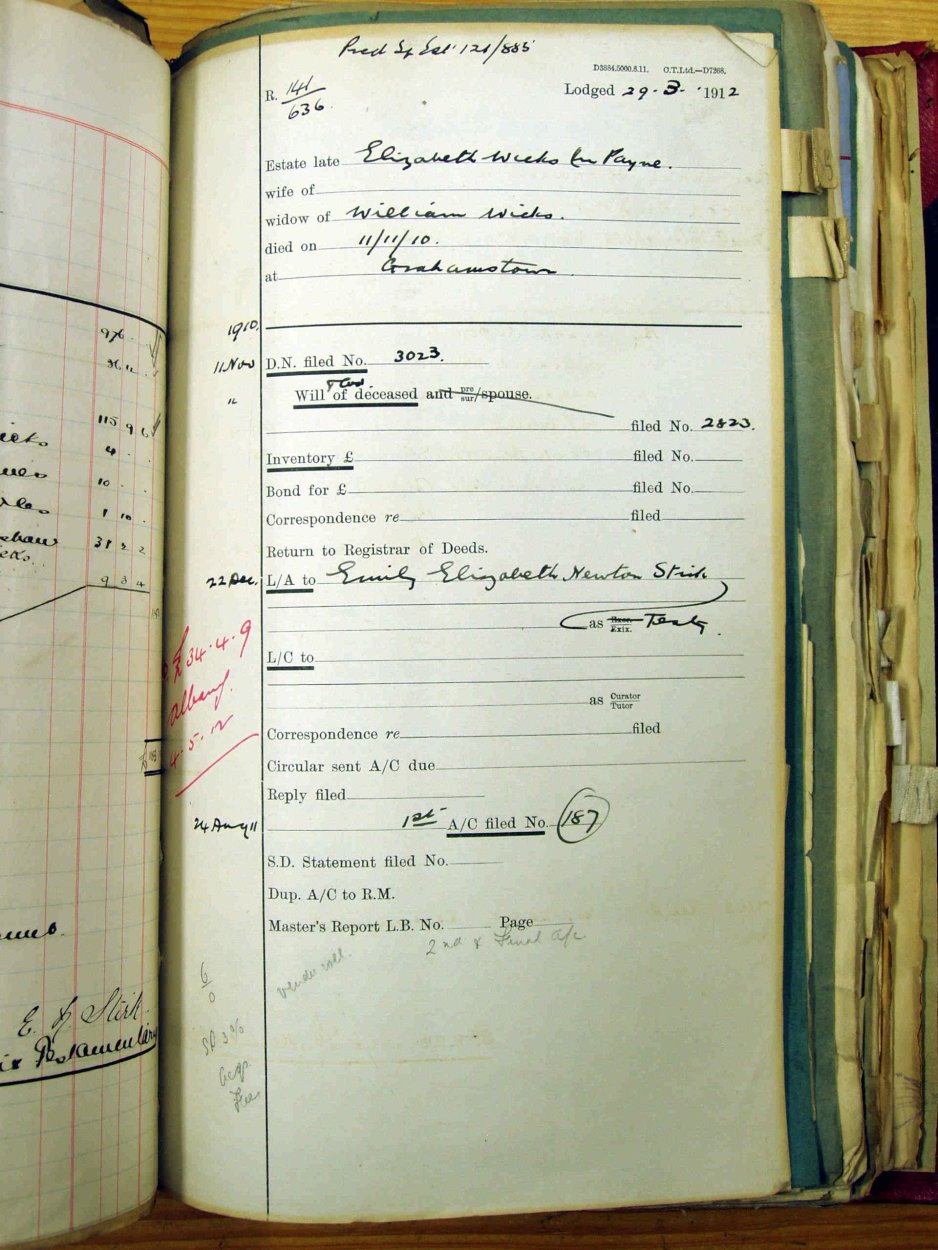 976
36
115 9 6
4
10
1 10
31 2 2
9 3 4
E. Stirk
Testamentary
Pred Sp Est 121/885
D3884.5000.8.11. C.T.Ltd.—D7268.
R. 141/636
Lodged 29-3-1912
Estate late Elizabeth Wicks bn Payne.
wife of
widow of William Wicks.
died on 11/11/10.
at Grahamstown
1910.
11 Nov D.N. filed No. 3023.
" Will of deceased and pre/sur/spouse.
filed No. 2823.
Inventory £ filed No.
Bond for £ filed No.
Correspondence re filed
Return to Registrar of Deeds.
22 Dec. L/A to Emily Elizabeth Newton Stirk
as Exor. Exix. Testy.
£34.4.9
Albany
4.5.12
L/C to
as Curator Tutor
Correspondence re filed
Circular sent A/C due
Reply filed
24 Aug 11 1st A/C filed No. 187
S.D. Statement filed No.
Dup. A/C to R.M.
Master's Report L.B. No. Page
2nd & Final A/c
6/0
SD 3%
Fee